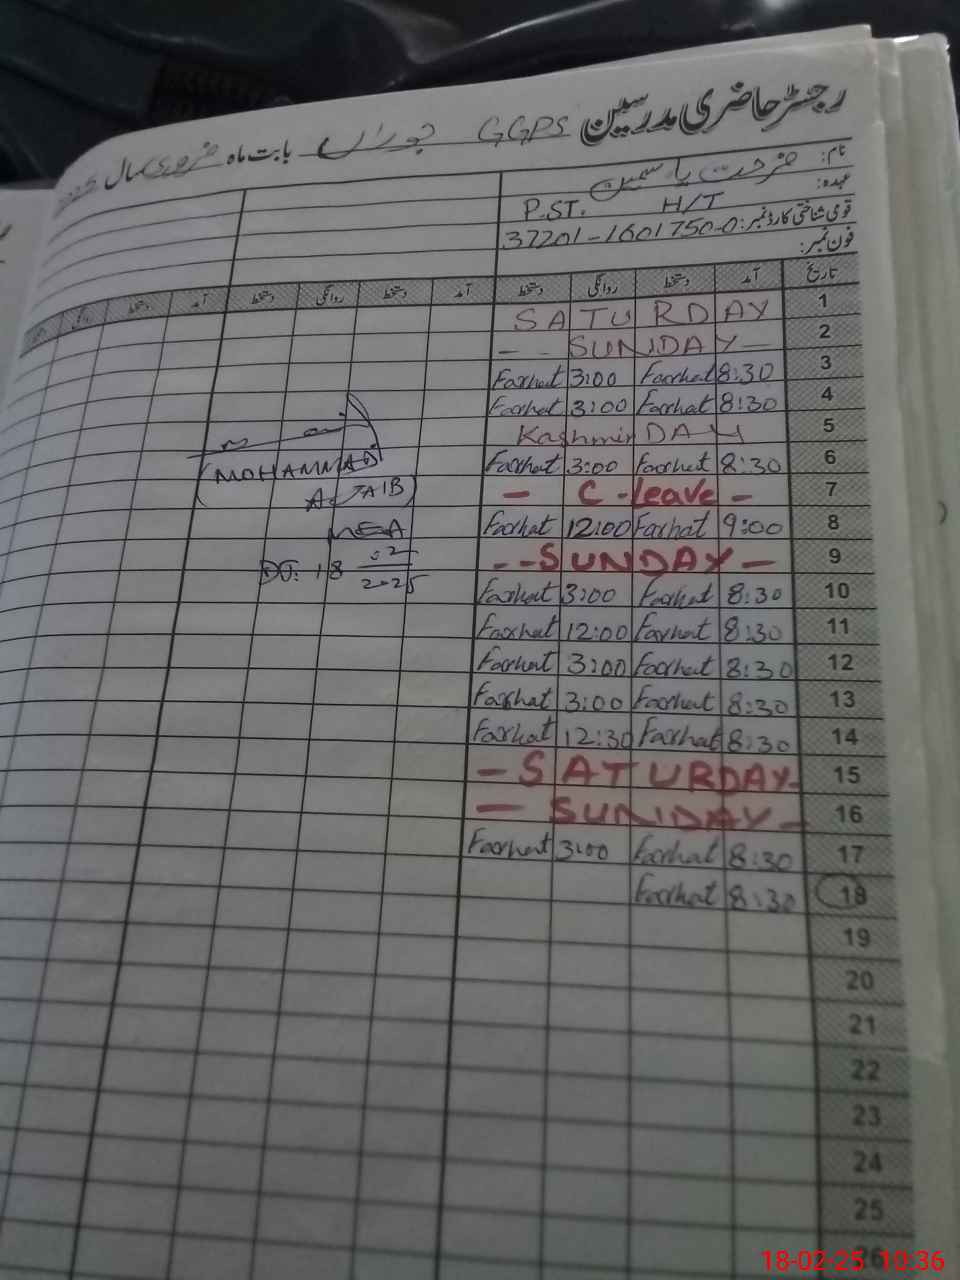 رجسٹر حاضری مدرسین GGPS جوراں بابت ماہ فروری سال 2025
نام: فرحت یاسمین
عہدہ: P.ST. H/T
قومی شناختی کارڈ نمبر: 37201-1601750-0
فون نمبر:
تاریخ آمد دستخط روانگی دستخط آمد دستخط روانگی دستخط آمد دستخط روانگی
1 SATURDAY
2 - - SUNDAY -
3 8:30 Farhat 3:00 Farhat
4 8:30 Farhat 3:00 Farhat
5 Kashmir DAY
6 8:30 Farhat 3:00 Farhat
7 - C-leave -
8 9:00 Farhat 12:00 Farhat
9 --SUNDAY-
10 8:30 Farhat 3:00 Farhat
11 8:30 Farhat 12:00 Farhat
12 8:30 Farhat 3:00 Farhat
13 8:30 Farhat 3:00 Farhat
14 8:30 Farhat 12:30 Farhat
15 -SATURDAY-
16 - SUNDAY-
17 8:30 Farhat 3:00 Farhat
18 8:30 Farhat
19
20
21
22
23
24
25
26
(MOHAMMAD
AJAIB)
MEA
DT: 18 02 2025
18-02-25 10:36